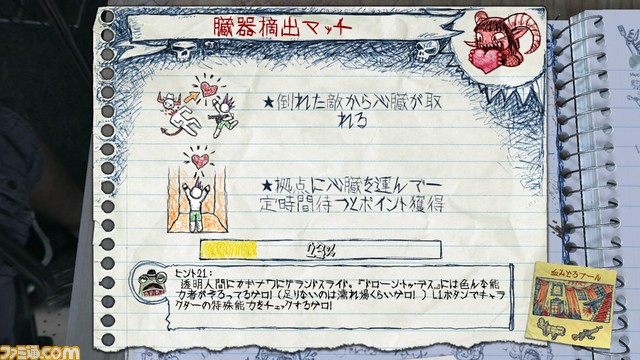 臓器摘出マッチ
★倒れた敵から心臓が取
れる
★拠点に心臓を運んで一
定時間待つとポイント獲得
23%
ヒント21:
透明人間にカギナワにグランドスライド。『ドローン・トゥ・デス』には色んな能
力者がそろってるゲロ！（足りないのは濡れ場くらいゲロ！）L1ボタンでキャラ
クターの特殊能力をチェックするゲロ！
血みどろプール
ファミ通.com